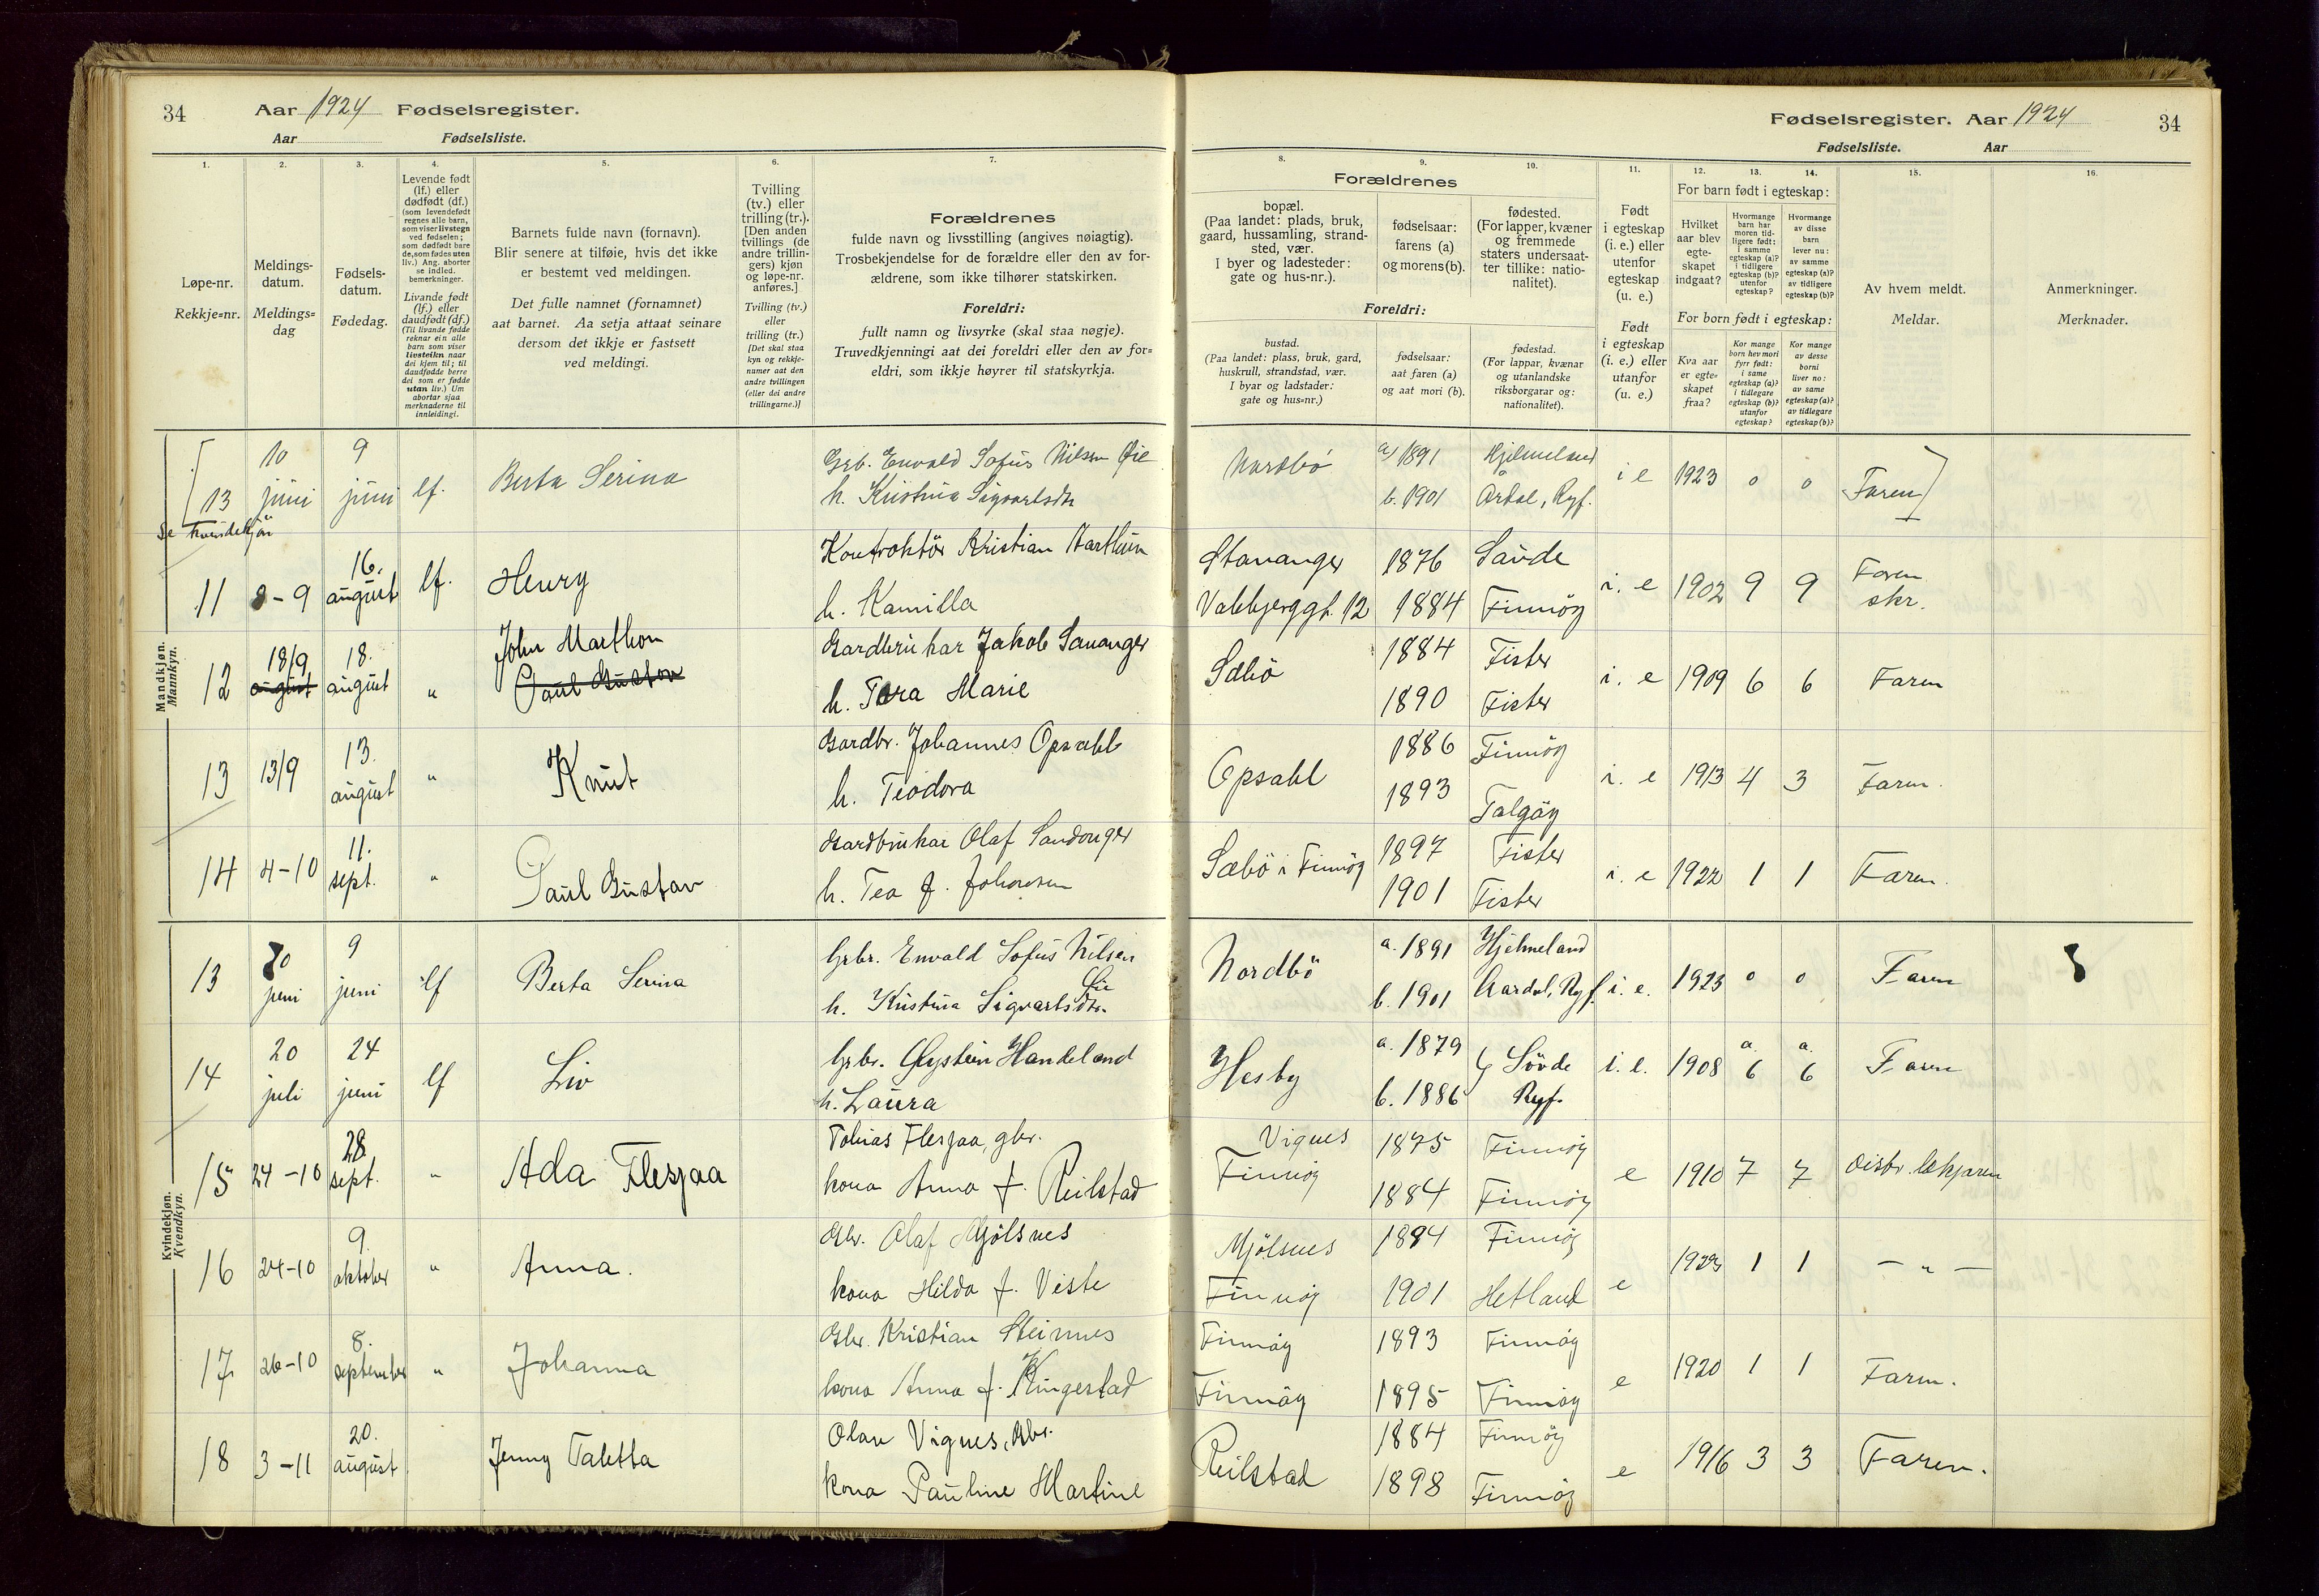 34 Aar 1924 Fødselsregister.
Aar Fødselsliste.
1. 2. 3. 4. 5. 6. 7.
Løpe-nr.
Rekkje=nr.
Meldings-
datum.
Meldings=
dag
Fødsels-
datum.
Fødedag.
Levende født
(lf.) eller
dødfødt (df.)
(som levendefødt
regnes alle barn,
som viser livstegn
ved fødselen;
som dødfødt bare
de, som fødes uten
liv.) Ang. aborter
se indled.
bemerkninger.
Livande født
(lf.) eller
daudfødt (df.)
(Til livande fødde
reknar ein alle
barn som viser
livsteikn naar
dei kjem til; til
daudfødde berre
dei som er fødde
utan liv.) Um
abortar sjaa
merknaderne til
innleidingi.
Barnets fulde navn (fornavn).
Blir senere at tilføie, hvis det ikke
er bestemt ved meldingen.
Det fulle namnet (fornamnet)
aat barnet. Aa setja attaat seinare
dersom det ikkje er fastsett
ved meldingi.
Tvilling
(tv.) eller
trilling (tr.).
[Den anden
tvillings (de
andre trillin-
gers) kjøn
og løpe-nr.
anføres.]
Tvilling (tv.)
eller
trilling (tr.)
[Det skal staa
kyn og rekkje-
numer aat den
andre tvillingen
(eller dei andre
trillingarne.)]
Forældrenes
fulde navn og livsstilling (angives nøiagtig).
Trosbekjendelse for de forældre eller den av for-
ældrene, som ikke tilhører statskirken.
Foreldri:
fullt namn og livsyrke (skal staa nøgje).
Truvedkjenningi aat dei foreldri eller den av for=
eldri, som ikkje høyrer til statskyrkja.
Fødselsregister. Aar 1924 34
Fødselsliste. Aar
8. 9. 10. 11. 12. 13. 14. 15. 16.
Forældrenes
bopæl.
(Paa landet: plads, bruk,
gaard, hussamling, strand-
sted, vær.
I byer og ladesteder:
gate og hus-nr.).
fødselsaar:
farens (a)
og morens (b).
fødested.
(For lapper, kvæner
og fremmede
staters undersaat-
ter tillike: natio-
nalitet).
Foreldri:
bustad.
(Paa landet: plass, bruk, gard,
huskrull, strandstad, vær.
I byar og ladstader:
gate og hus=nr.)
fødselsaar:
aat faren (a)
og aat mori (b).
fødestad.
(For lappar, kvænar
og utanlandske
riksborgarar og:
nationalitet).
Født
i egteskap
(i. e.) eller
utenfor
egteskap
(u. e.)
Født
i egteskap
(i. e.) eller
utanfor
(u. e.)
For barn født i egteskap:
Hvilket
aar blev
egte-
skapet
indgaat?
Hvormange
barn har
moren tid-
ligere født:
i samme
egteskap (a)?
i tidligere
egteskap (b)?
utenfor
egteskap?
Hvormange
av disse
barn
lever nu:
av samme
egteskap (a)?
av tidligere
egteskap (b)?
For born født i egteskap:
Kva aar
er egte=
skapet
fraa?
Kor mange
born hev mori
fyrr født:
i same
egteskap (a)?
i tidlegare
egteskap (b)?
utanfor
egteskap?
Kor mange
av desse
borni
liver no:
av same
egteskap (a)?
av tidlegare
egteskap (b)?
Av hvem meldt.
Meldar.
Anmerkninger.
Merknader.
13 10 juni 9 juni lf. Berta Serina Grb. Envald Sofus Nilsen Øie
h. Kristina Sigvartsdtr
Nordbö a/ 1891 Hjelmeland i e 1923 0 0 Faren
b. 1901 Årdal, Ryf.
Se kvindekjön
Mandkjøn.
Mannkyn.
11 8-9 16. august lf. Henry Kontroktör Kristian
h. Kamilla
Stavanger 1876 Saude i. e 1902 9 9 Faren
skr.
12 1884 Finnöy
12 18/9 august 18. august " John Marthon
Paul Gustav
Gardbrukar Jakob
h. Tora Marie
Sæbö 1884 Fister i. e 1909 6 6 Faren
1890 Fister
13 13/9 13. august " Knut Gardbr. Johannes Opsahl
h. Teodora
Opsahl 1886 Finnöy i. e 1913 4 3 Faren.
1893 Talgöy
14 4-10 11. sept. " Paul Gustav Gardbrukar Olaf Sandanger
h. Tea f. Johnsen
Sæbö i Finnöy 1897 Fister i. e 1922 1 1 Faren.
1901 Fister
Kvindekjøn.
Kvendkyn.
13 10 juni 9 juni lf Berta Serina Grbr. Envald Sofus Nilsen
Øie
h. Kristina Sigvartsdtr.
Nordbö a. 1891 Hjelmeland i. e. 1923 0 0 Faren
b. 1901 Aardal, Ryf.
14 20 juli 24 juni lf Liv Grbr. Øystein Handeland
h. Laura
Hesby a. 1879 Sövde i. e. 1908 a. 6 a. 6 Faren
b. 1886 Ryf.
15 24-10 28 sept. " Ada Flesjaa Tobias Flesjaa, gbr.
kona Anna f. Reilstad
Vignes 1875 Finnöy e 1910 7 7 distr. lækjaren
Finnöy 1884 Finnöy
16 24-10 9. oktober " Anna. Gbr. Olaf Mjölsnes
kona Hilda f. Viste
Mjölsnes 1894 Finnöy e 1 1 — " —
Finnöy 1901 Hetland
17 26-10 8. september " Johanna Gbr. Kristian Steinnes
kona Anna f. Kingestad
Finnöy 1893 Finnöy e 1920 1 1 Faren.
Finnöy 1895 Finnöy
18 3-11 20. august Jenny Taletta Olav Vignes, Gbr.
kona Pauline Martine
Reilstad 1884 Finnöy e 1916 3 3 Faren.
1898 Finnöy